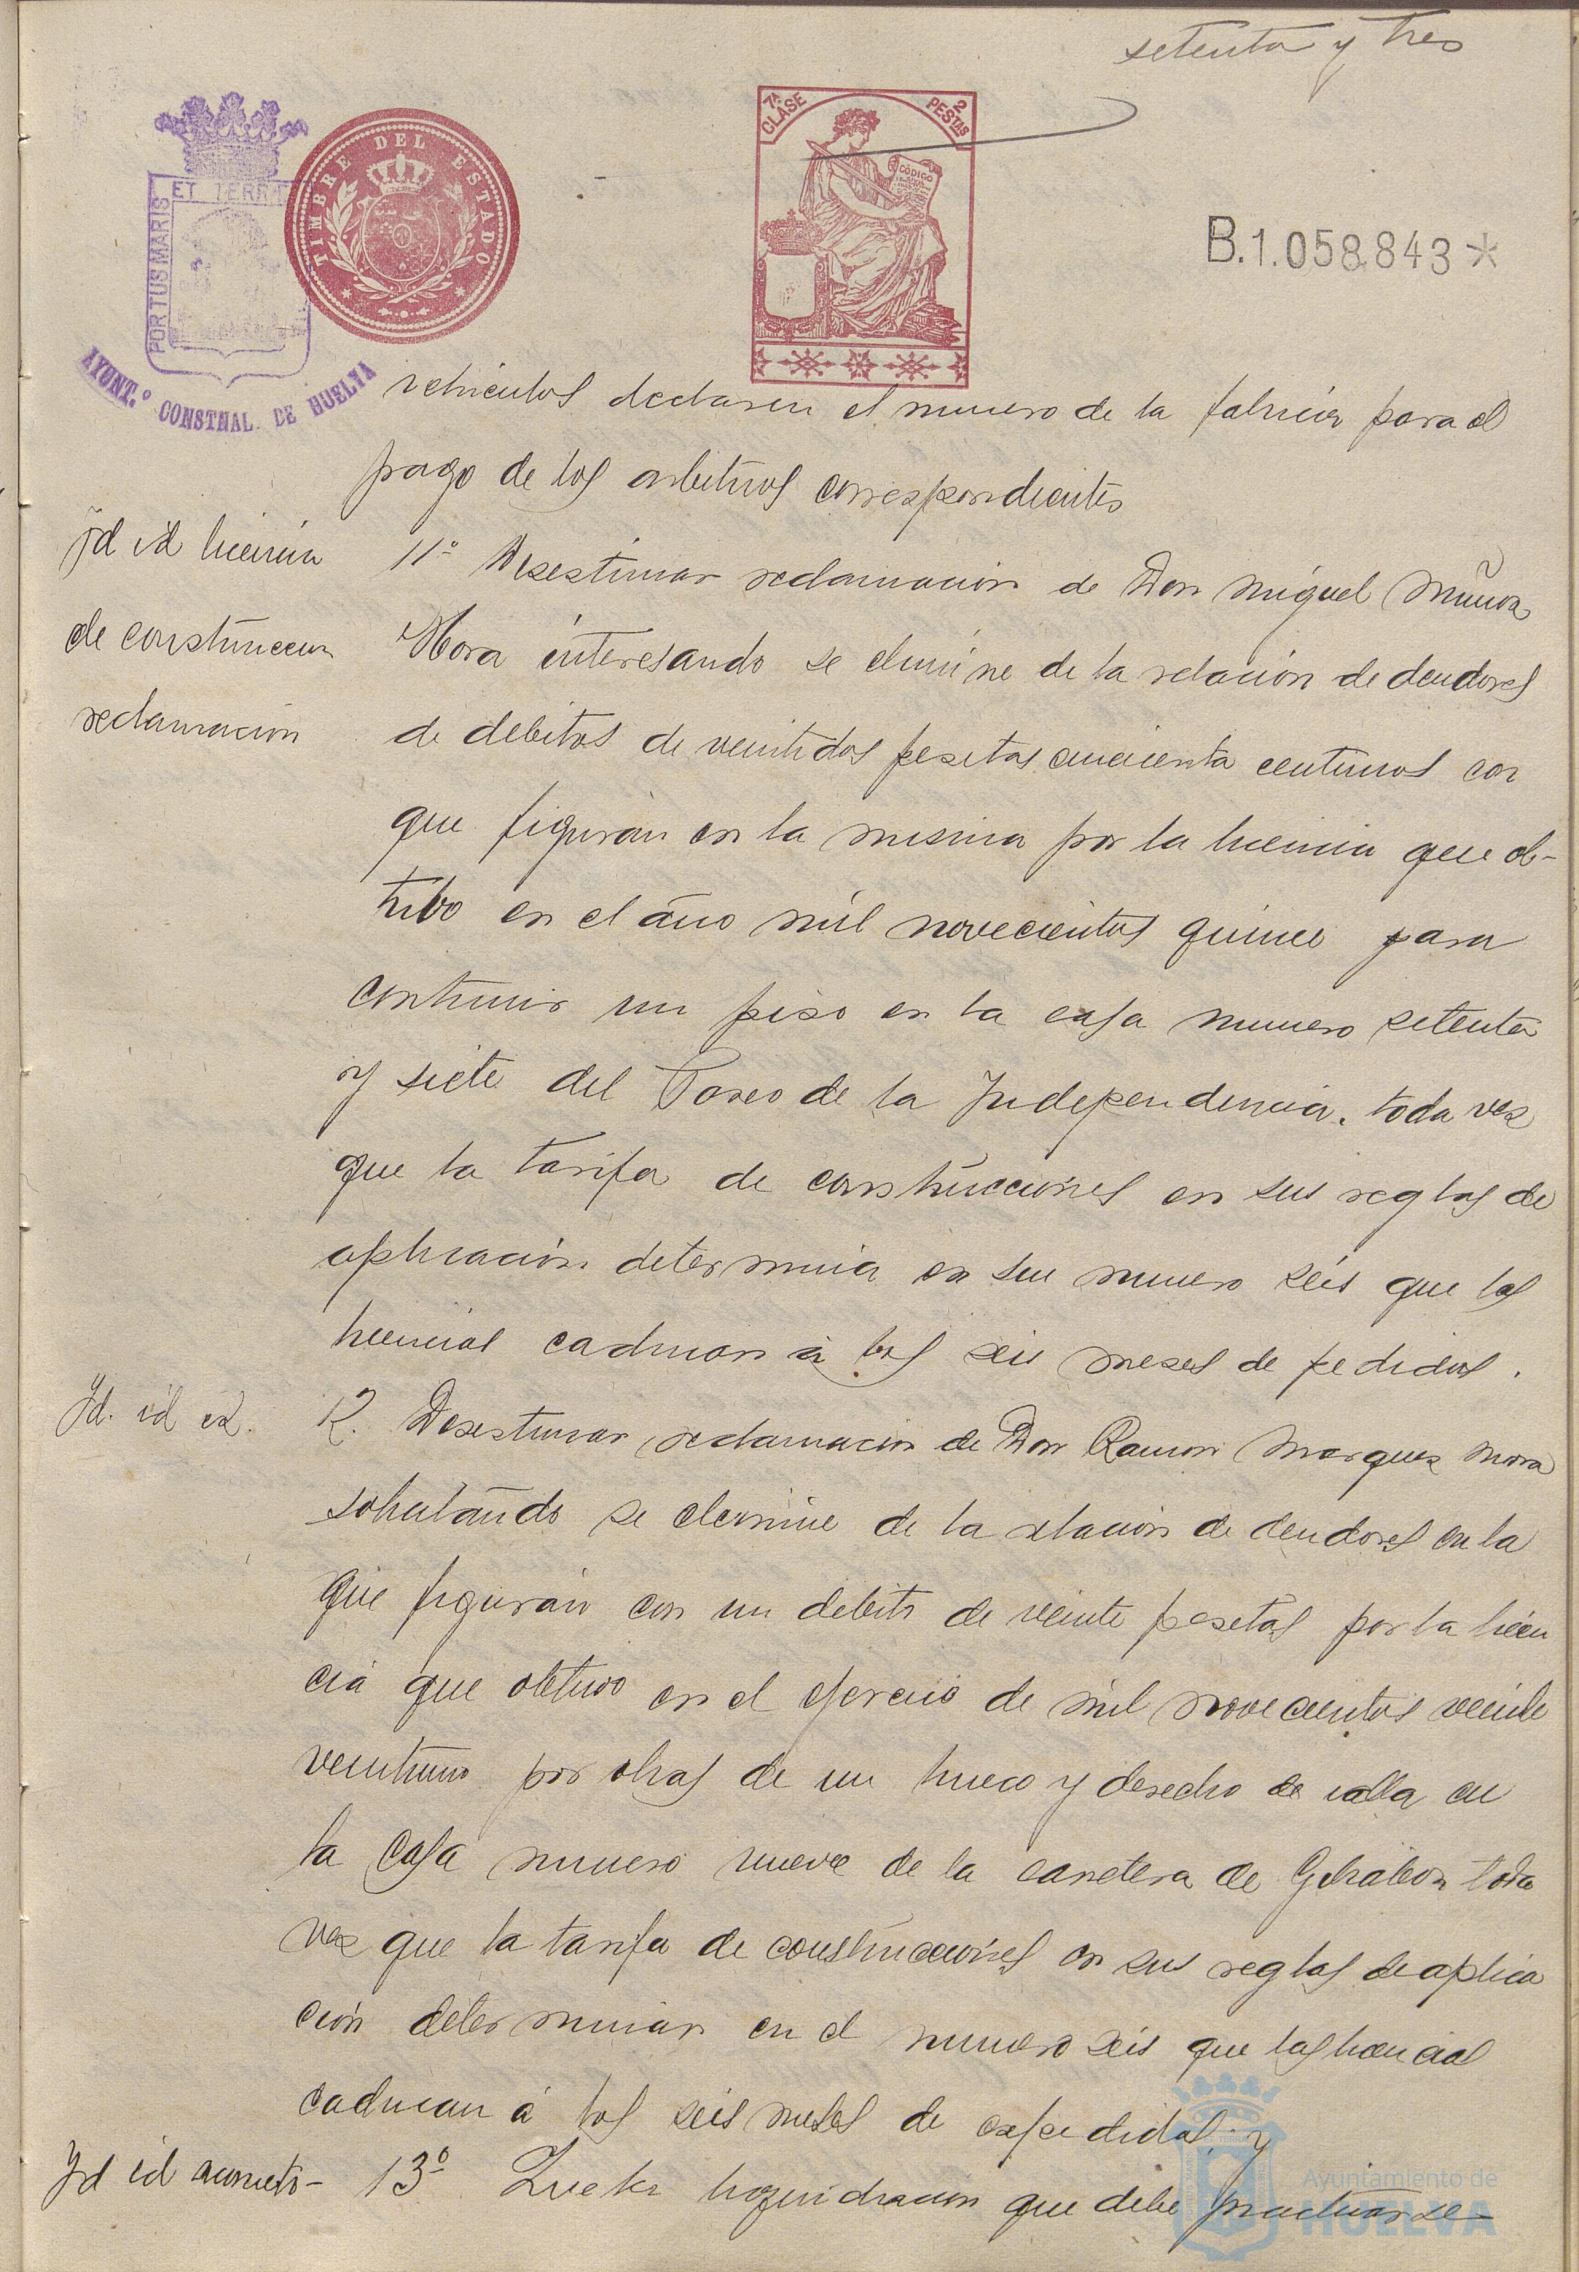 setenta y tres
7ª CLASE
2 PESTAS
CÓDIGO
TIMBRE DEL ESTADO
PORTUS MARIS ET TERR
AYUNT.º CONSTNAL. DE HUELVA
B.1.058.843*
vehiculos declaren el numero de la fabrica para el
pago de los arbitrios correspondientes
Id id licencia
de construccion
reclamacion
11º Desestimar reclamacion de Don Miguel Muñoz
Mora interesando se elimine de la relacion de deudores
de debitos de veintidos pesetas cincuenta centimos con
que figuran en la misma por la licencia que ob-
tubo en el año mil novecientos quince para
contruir un piso en la casa numero setenta
y siete del Paseo de la Independencia, toda vez
que la tarifa de construcciones en sus reglas de
aplicacion determina en su numero seis que las
licencias caducan á los seis meses de pedidas.
Id. id id.
12. Desestimar reclamacion de Don Ramon Marquez Mora
solicitando se elemine de la relacion de deudores en la
que figuran con un debito de veinte pesetas por la licen
cia que obtuvo en el ejercicio de mil novecientos veinte
veintiuno por obras de un hueco y derecho de valla en
la casa numero nueve de la carretera de Gibraleon toda
vez que la tarifa de construcciones en sus reglas de aplica
cion determinan en el numero seis que las licencias
caducan á los seis meses de expedidas, y
Id id acometi-
13º Que la liquidacion que debe practicarse
Ayuntamiento de
HUELVA